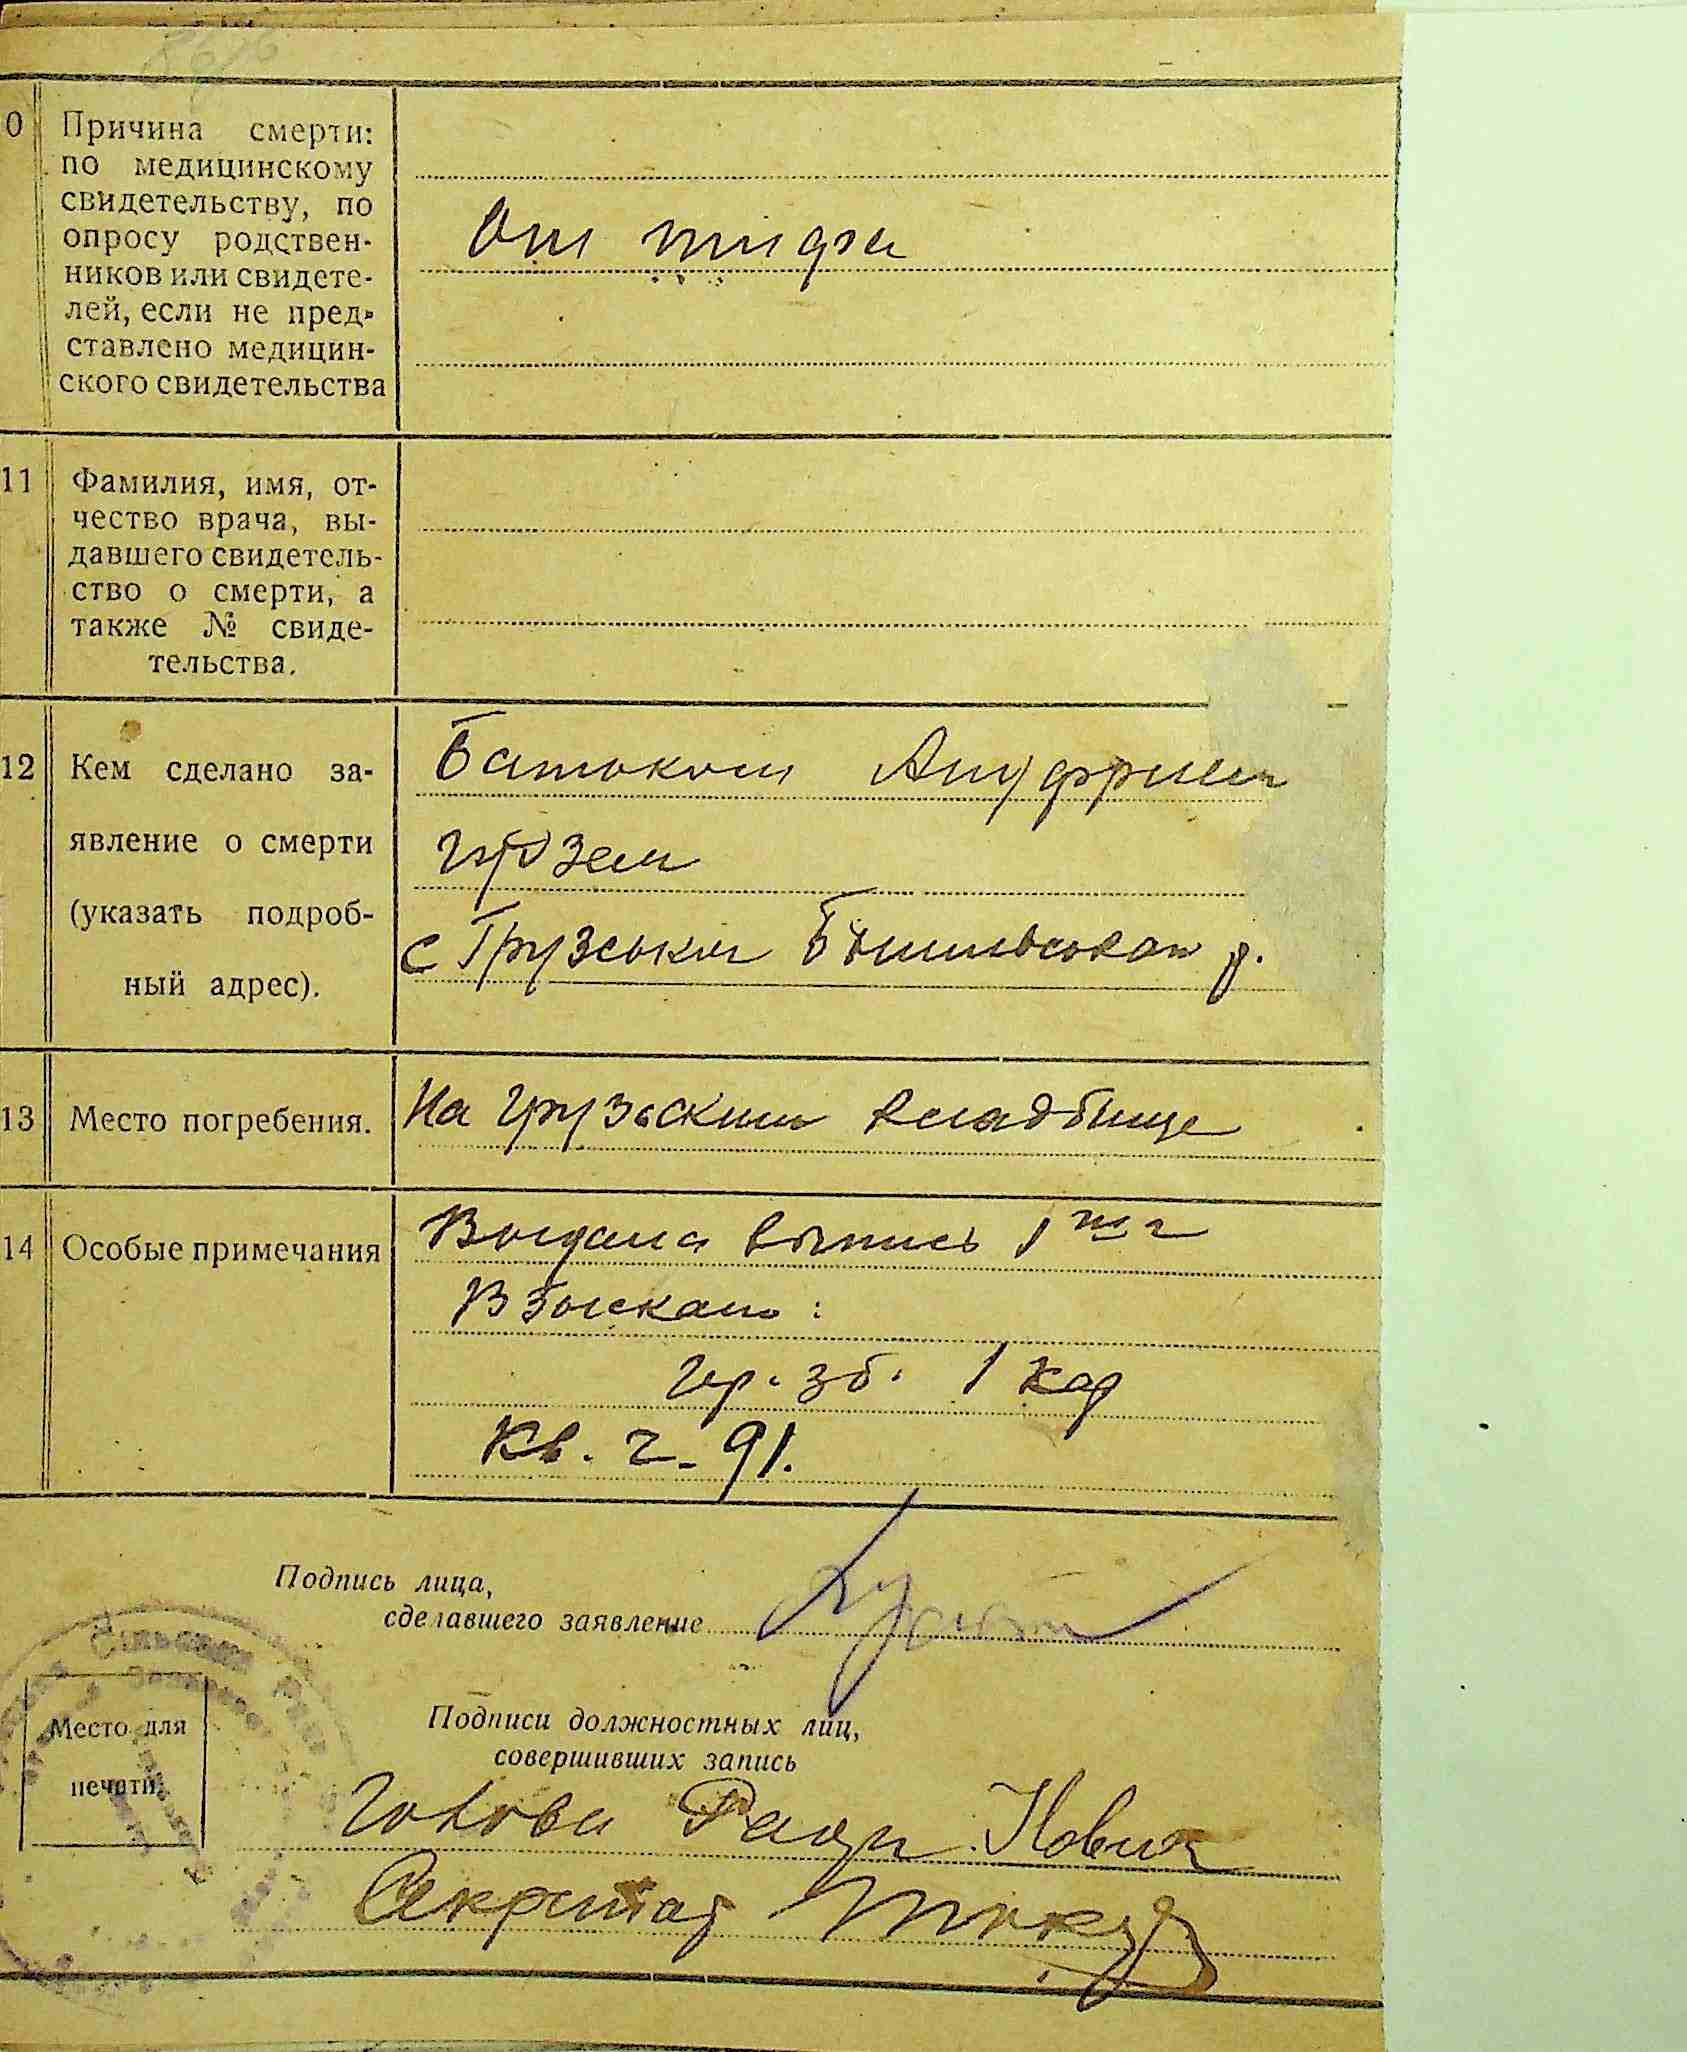 0 Причина смерти:
по медицинскому
свидетельству, по
опросу родствен-
ников или свидете-
лей, если не пред-
ставлено медицин-
ского свидетельства
От тифа
11 Фамилия, имя, от-
чество врача, вы-
давшего свидетель-
ство о смерти, а
также № свиде-
тельства.
12 Кем сделано за-
явление о смерти
(указать подроб-
ный адрес).
Батьком
с Грузське р.
13 Место погребения.
На грузьским кладбище
14 Особые примечания
Выдана выпись
Взыскано:
гер. зб. 1 кар
Кв. ч. 91.
Подпись лица,
сделавшего заявление
Место для
печати.
Подписи должностных лиц,
совершивших запись
Голова Ради Новик
Секретар